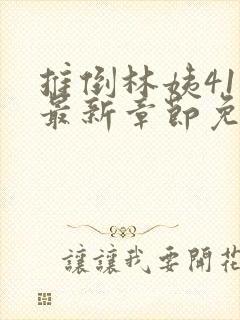 推倒林姨41
最新章節免
讓讓我要開花